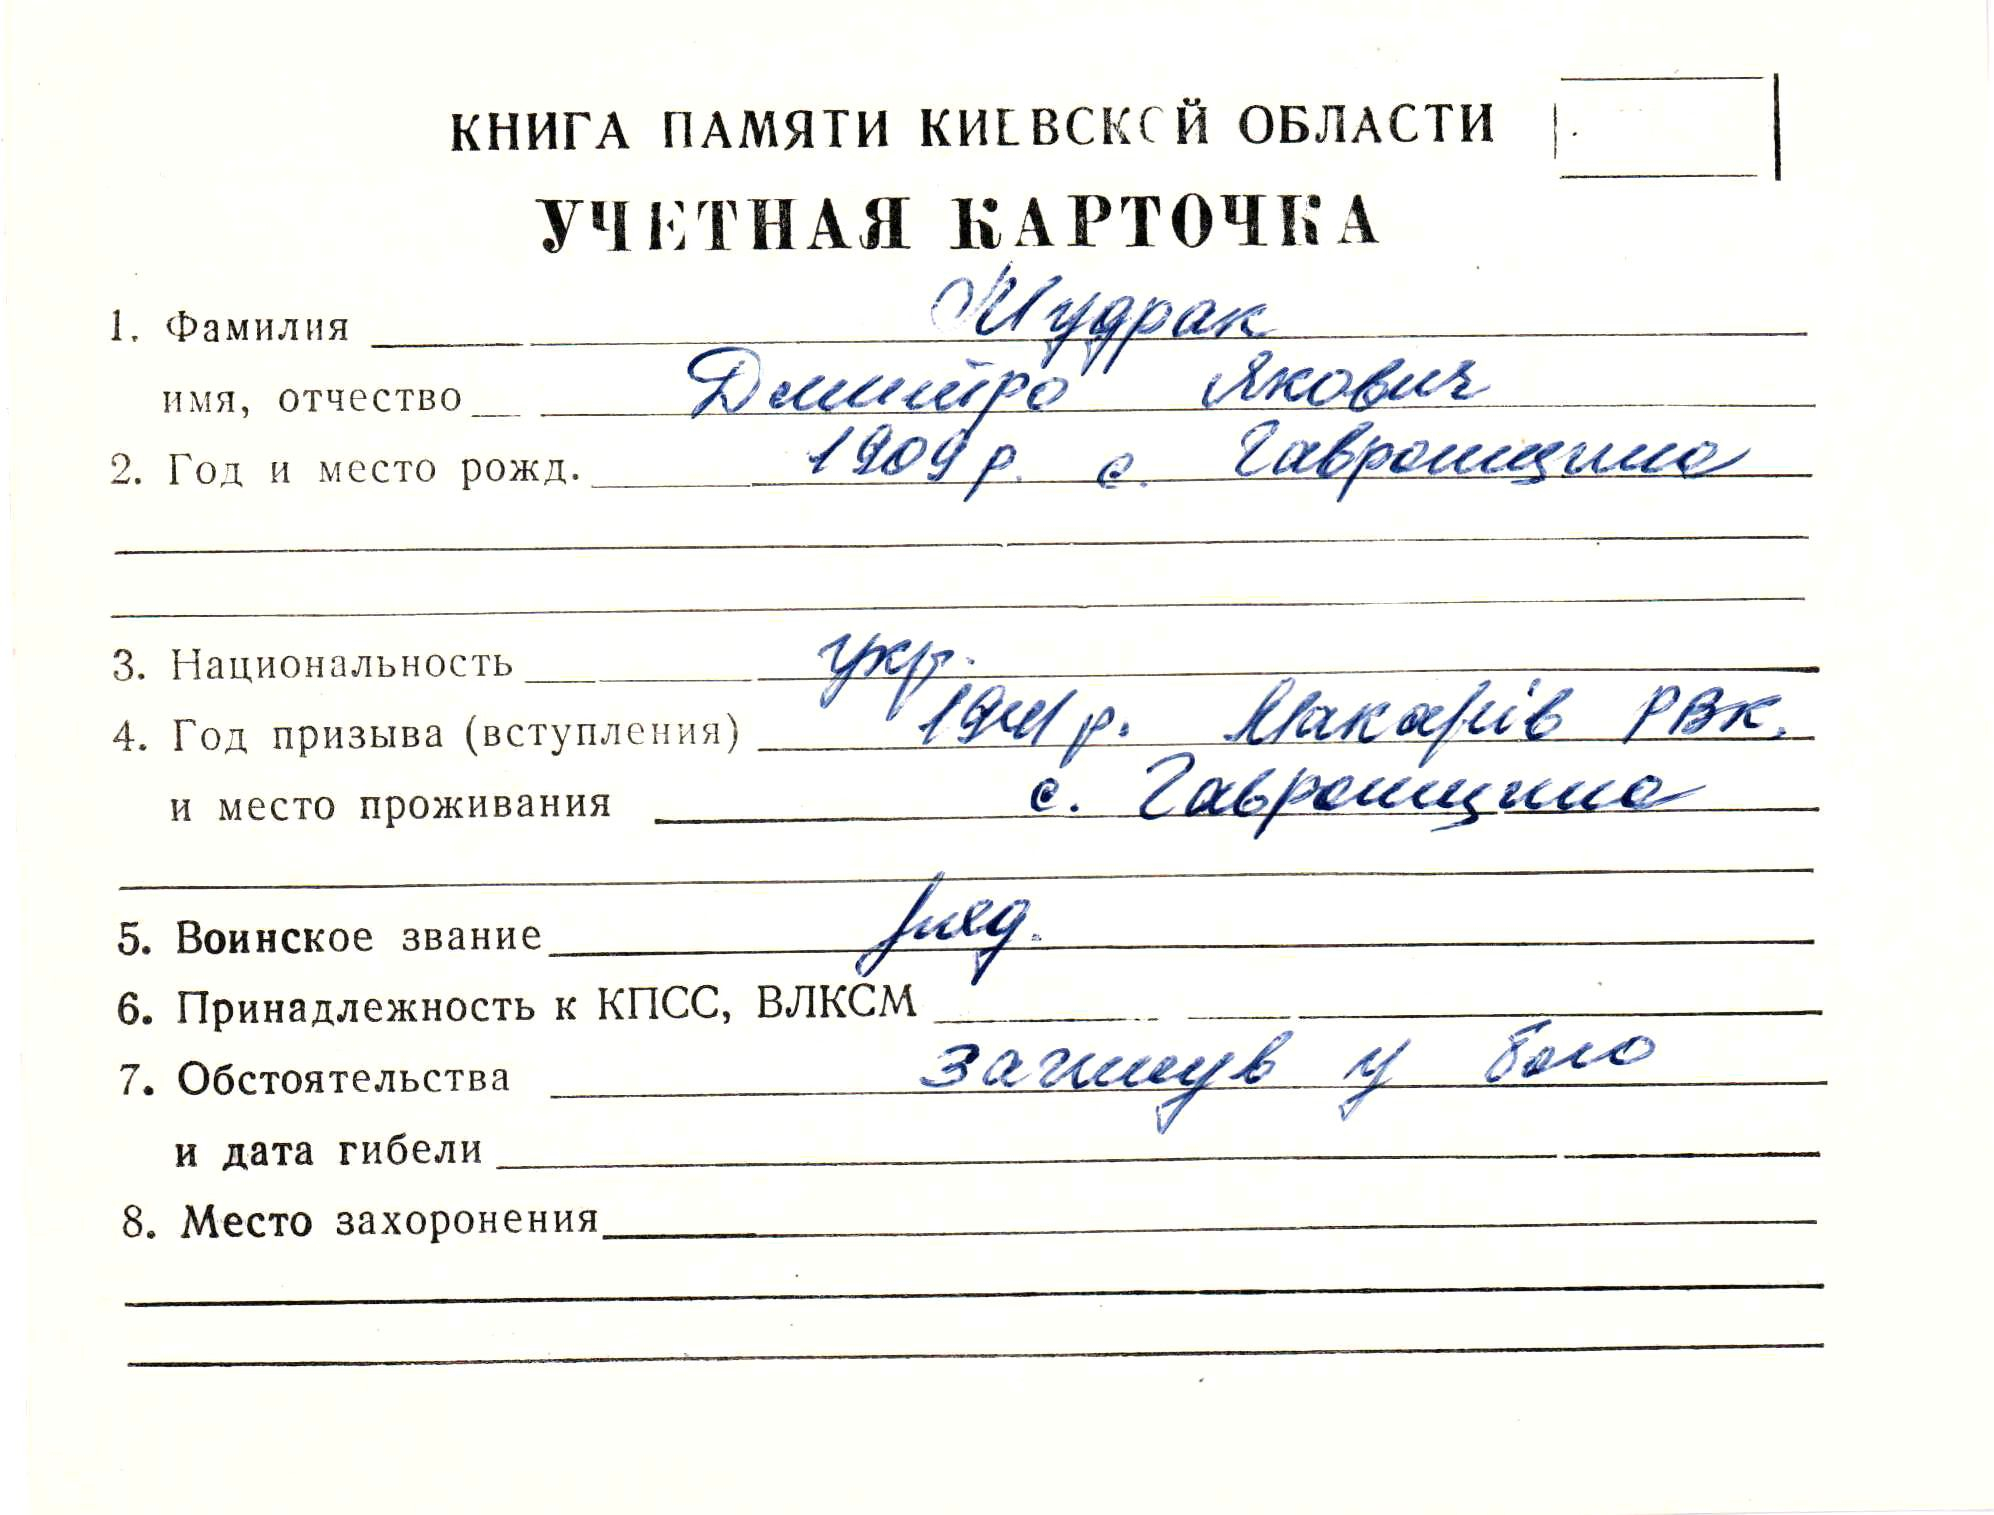 КНИГА ПАМЯТИ КИЕВСКОЙ ОБЛАСТИ
УЧЕТНАЯ КАРТОЧКА
1. Фамилия Мудрак
имя, отчество Дмитро Якович
2. Год и место рожд. 1909 р. с. Гавронщина
3. Национальность укр.
4. Год призыва (вступления) 1941 р. Макарів РВК.
и место проживания с. Гавронщина
5. Воинское звание ряд.
6. Принадлежность к КПСС, ВЛКСМ
7. Обстоятельства загинув у бою
и дата гибели
8. Место захоронения